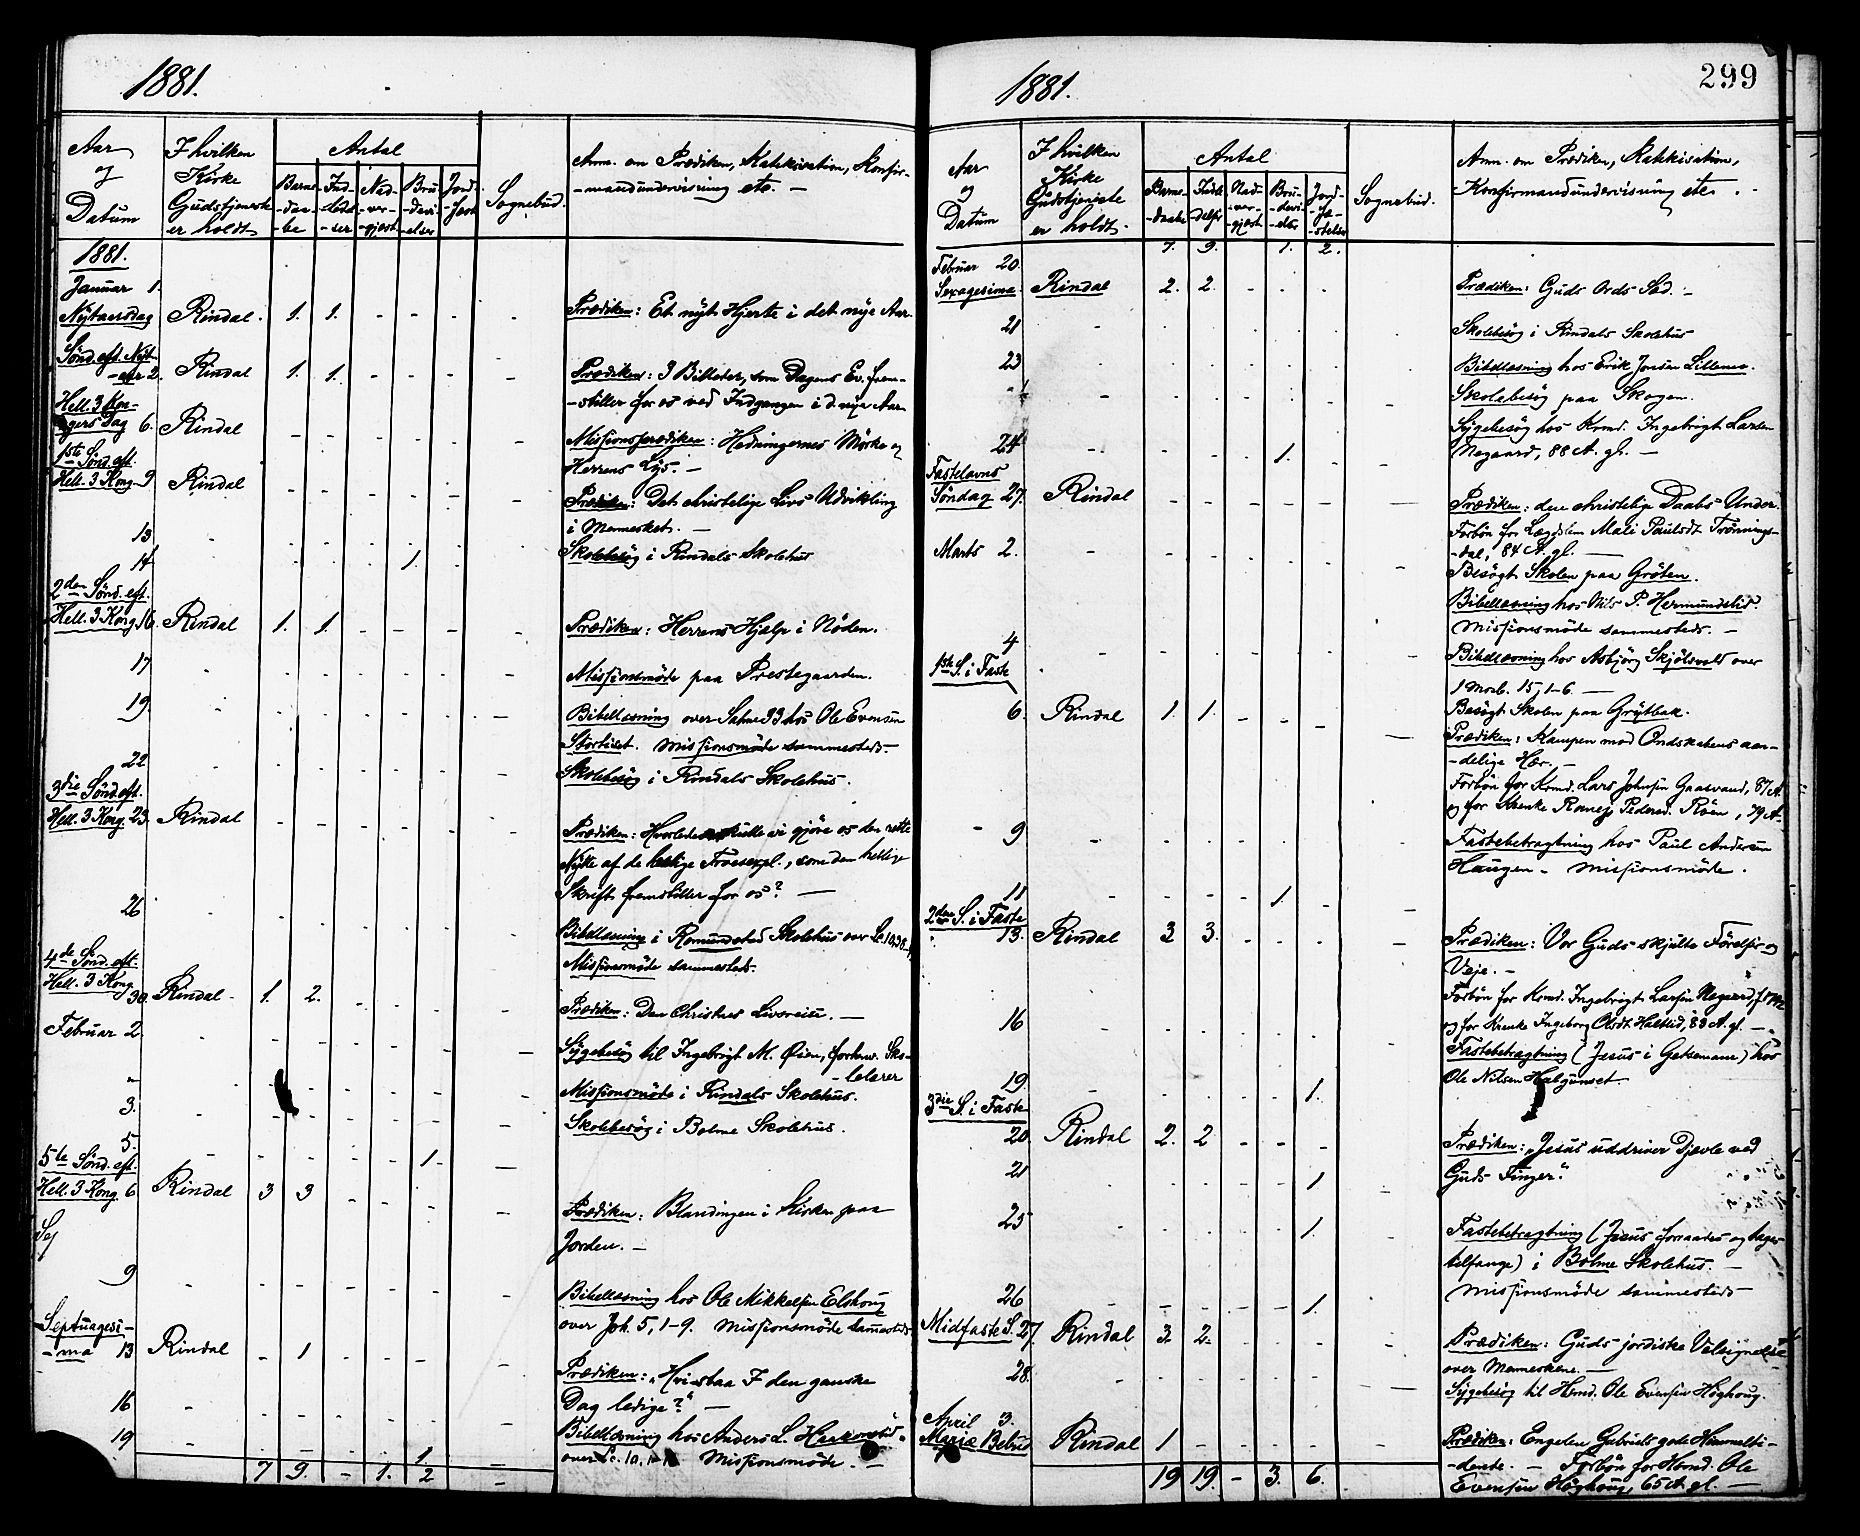 1881.
Aar og Datum
I hvilken Kirke Gudstjeneste er holdt
Antal
Barnedaabe
Indledelser
Nadvergjest
Brudevielser
Jordfæst
Sognebud.
Anm. om Prædiken, Katekisation, Konfirmandundervisning etc. —
1881.
Januar 1.
Nytaarsdag Rindal. 1. 1. - - - - Prædiken: Et nyt Hjerte i det nye Aar.
Sønd. eft. Nyt-
-aar 2. Rindal 1. 1. - - - - Prædiken: 3 Billeder, som Dagens Ev. frem-
-stiller for os ved Indgangen i d. nye Aar
Hell. 3 Kon-
gers Dag 6. Rindal - - - - - Missionsprædiken: Hedningernes Mørke og
Herrens Lys. —
1ste Sønd. eft.
Hell. 3 Kong. 9 Rindal - - - - - Prædiken: Det christelige Livs Udvikling
i Mennesket. —
13 Skolebesøg i Rindals Skolehus
14 1.
2den Sønd. eft.
Hell. 3 Kong. 16. Rindal 1. 1. - - - - Prædiken: Herrens Hjælp i Nøden.
17 Missionsmøde paa Prestegaarden.
19 Bibellæsning over Salme 33 hos Ole Evensen
Stortiset. Missionsmøde sammesteds. —
22 Skolebesøg i Rindals Skolehus.
3die Sønd. eft.
Hell. 3 Kong. 23. Rindal - - - - - Prædiken: Hvorledes skulle vi gjøre os den rette
Nytte af de hellige Troesexpl., som den hellige
Skrift fremstiller for os? —
26 Bibellæsning i Romundstad Skolehus over Lc. 10,38
Missionsmøde sammesteds.
4de Sønd. eft.
Hell. 3 Kong.
30. Rindal 1. 2. - - - Prædiken: Den Christnes Livsreise. —
Februar 2. Sygebesøg til Ingebrigt M. Øien, forhenv. Sko-
-lelærer
- Missionsmøde i Rindals Skolehus.
3. Skolebesøg i Bolme Skolehus.
5. 1.
5te Sønd. eft.
Hell. 3 Kong. 6 Rindal 3 3 - - - Prædiken: Blandingen i Kirken paa
Jorden. —
9 Bibellæsning hos Ole Mikkelsen Elshoug
over Joh. 5, 1-9. Missionsmøde sammesteds
Septuagesi-
-ma 13 Rindal - 1 - - - Prædiken: "Hvi staa I den ganske
Dag ledige?" —
16 Bibellæsning hos Anders L. Haakonstad
over Lc. 10, Missionsmøde. —
19 1
7 9. - 1. 2 -
1881.
299
Aar og Datum
I hvilken Kirke Gudstjeneste er holdt.
Antal
Barnedaabe
Indledelser
Nadvergjest
Brudevielser
Jordfæstelser
Sognebud.
Anm. om Prædiken, Katekisation,
Konfirmandundervisning etc. -
7. 9. 1. 2.
Februar 20.
Sexagesima. Rindal 2. 2. - - - Prædiken: Guds Ords Sæd. -
21 Skolebesøg i Rindals Skolehus
23 Bibellæsning hos Erik Jonsen Lillemo.
Skolebesøg paa Skogen.
24 1. Sygebesøg hos Krmd. Ingebrigt Larsen
Negaard, 88 A. gl. —
Fastelavns
Søndag 27. Rindal - - - - - Prædiken: den christelige Daabs Under.
Forbøn for Lægdslem Mali Paulsdt Trønnings-
-dal, 84 A. gl. —
Marts 2. Besøgt Skolen paa Grøten.
Bibellæsning hos Nils P. Hermundslid.
Missionsmøde sammesteds. —
4 Bibellæsning hos Asbjørg Skjølsvold over
1 Moseb. 15, 1-6. —
Besøgt Skolen paa Grytbak.
1ste S. i Faste
6. Rindal 1. 1. - - - Prædiken: Kampen mod Ondskabens aan-
-delige Hær. —
Forbøn for Krmd. Lars Johnsen Gaasvand, 87 A.
og for Krenke Pedersd. Røen, 79 A.
9 Fastebetragtning hos Paul Andersen
Haugen. Missionsmøde.
11 1.
2den S. i Faste
13. Rindal 3 3. - - - Prædiken: Vor Guds skjulte Førelser og
Veje. -
Forbøn for Krmd. Ingebrigt Larsen Negaard,
og for Krenke Ingeborg Olsdt Haltlid, 83 A. gl. —
16 Fastebetragtning (Jesus i Getsemane) hos
Ole Nilsen Helgunset.
19. 1.
3die S. i Faste
20. Rindal 2. 2 - - - Prædiken: "Jesus uddriver Djævle ved
Guds Finger".
21 1
25 1. Fastebetragtning (Jesus forraades og tages
tilfange) i Bolme Skolehus. —
Missionsmøde sammesteds —
26 1.
Midfaste S. 27. Rindal 3. 2. - - - Prædiken: Guds jordiske Velsignelse
over Menneskene. —
28. Sygebesøg til Hmd. Ole Evensen Høghoug.
April 3.
Mariæ Bebud Rindal 1 - - - - Prædiken: Engelen Gabriels gode Himmelti-
-dende. — Forbøn for Hmd. Ole
Evensen Høghoug, 65 A. gl. —
19 19. - 3. 6.